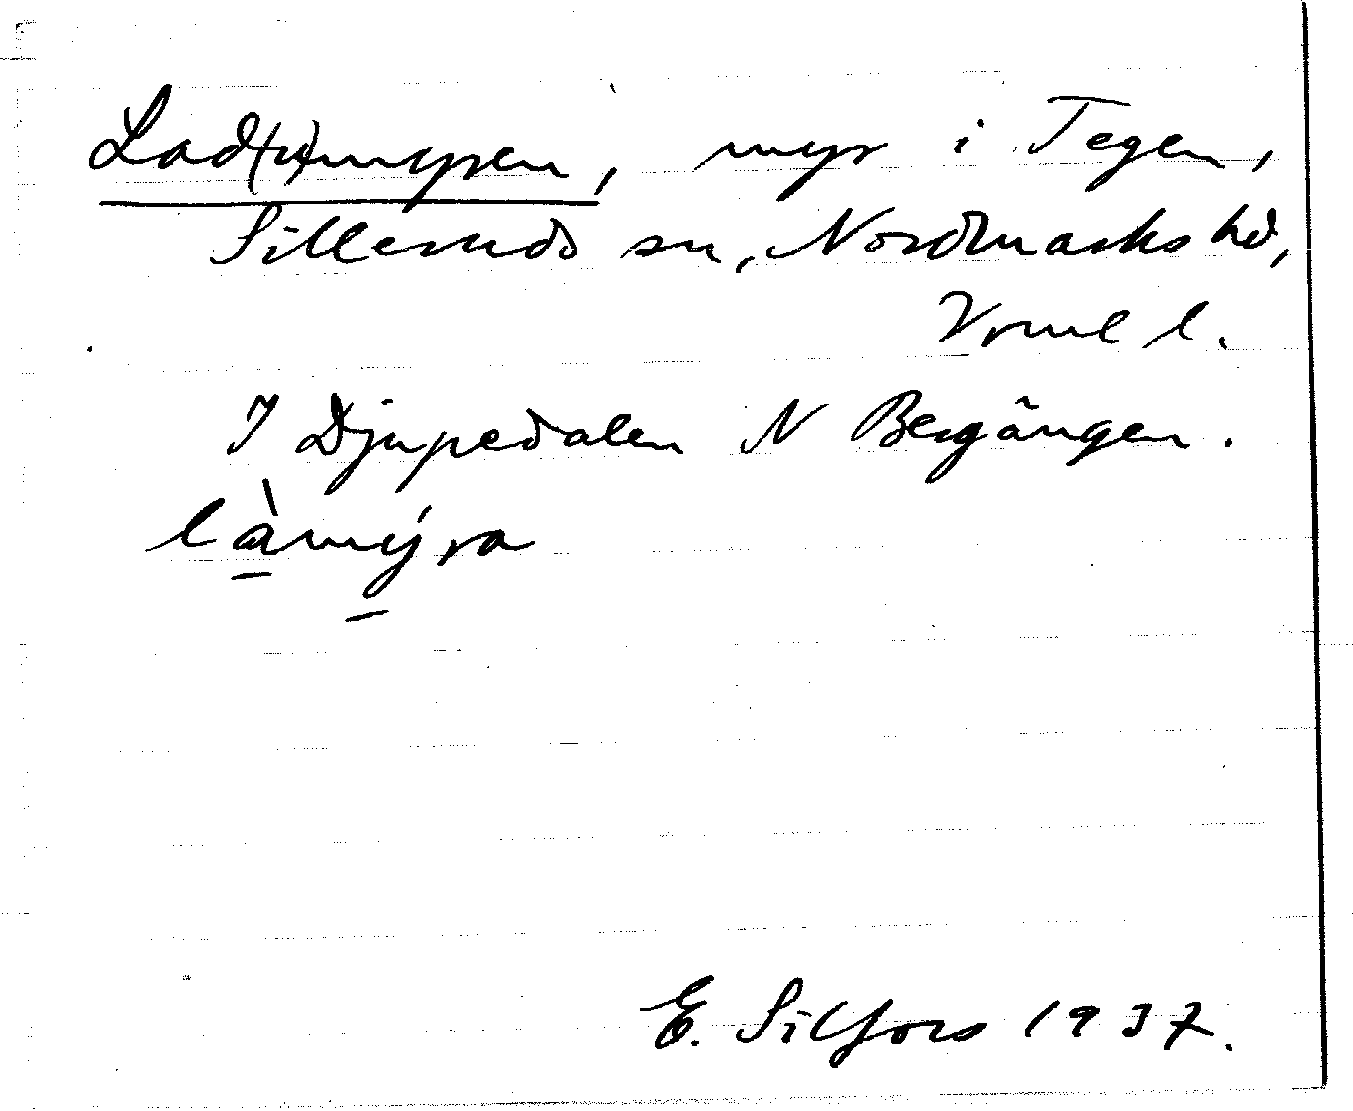 Lad(u)myren, myr i Tegen,
Silleruds sn, Nordmarks hd,
Vrml l.
I Djupedalen N Bergången.
làmýra
E. Silfors 1937.